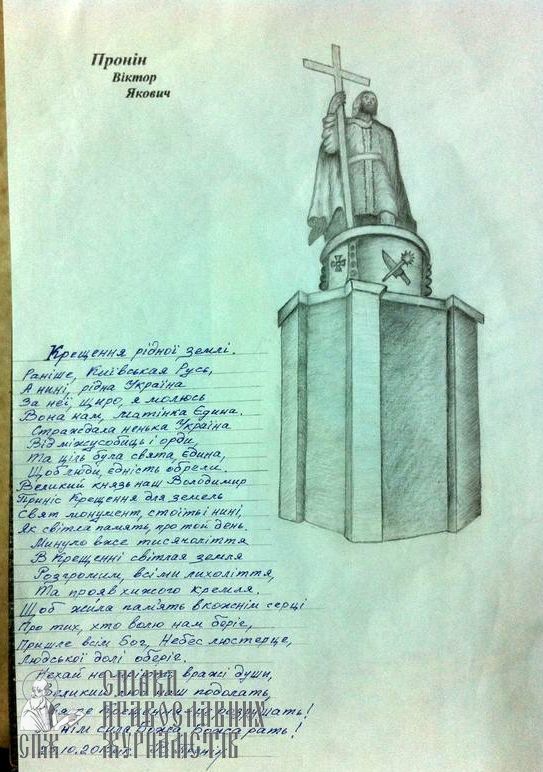 Пронін
Віктор
Якович
Крещення рідної землі.
Раніше, Київськая Русь,
А нині, рідна Україна
За неї, щиро, я молюсь
Вона нам, матінка Єдина.
Страждала ненька Україна
Від міжусобиць і орди,
Та ціль була свята, єдина,
Щоб люди, єдність обрели.
Великий князь наш Володимир
Приніс Крещення для земель
Свят монумент, стоїть і нині,
Як світла память, про той день.
Минуло вже тисячоліття
В Крещенні світлая земля
Розгромим, всі ми лихоліття,
Та прояв хижого Кремля.
Щоб жила пам'ять в кожнім серці
Про тих, хто волю нам беріг,
Пришле всім Бог, Небес люстерце,
Людської долі оберіг.
Нехай не вражі душі,
Великий наш подолать,
!
нім сила Божа, Божа рать!
.10.20
СПІЛКА
ПРАВОСЛАВНИХ
СПЖ ЖУРНАЛІСТІВ